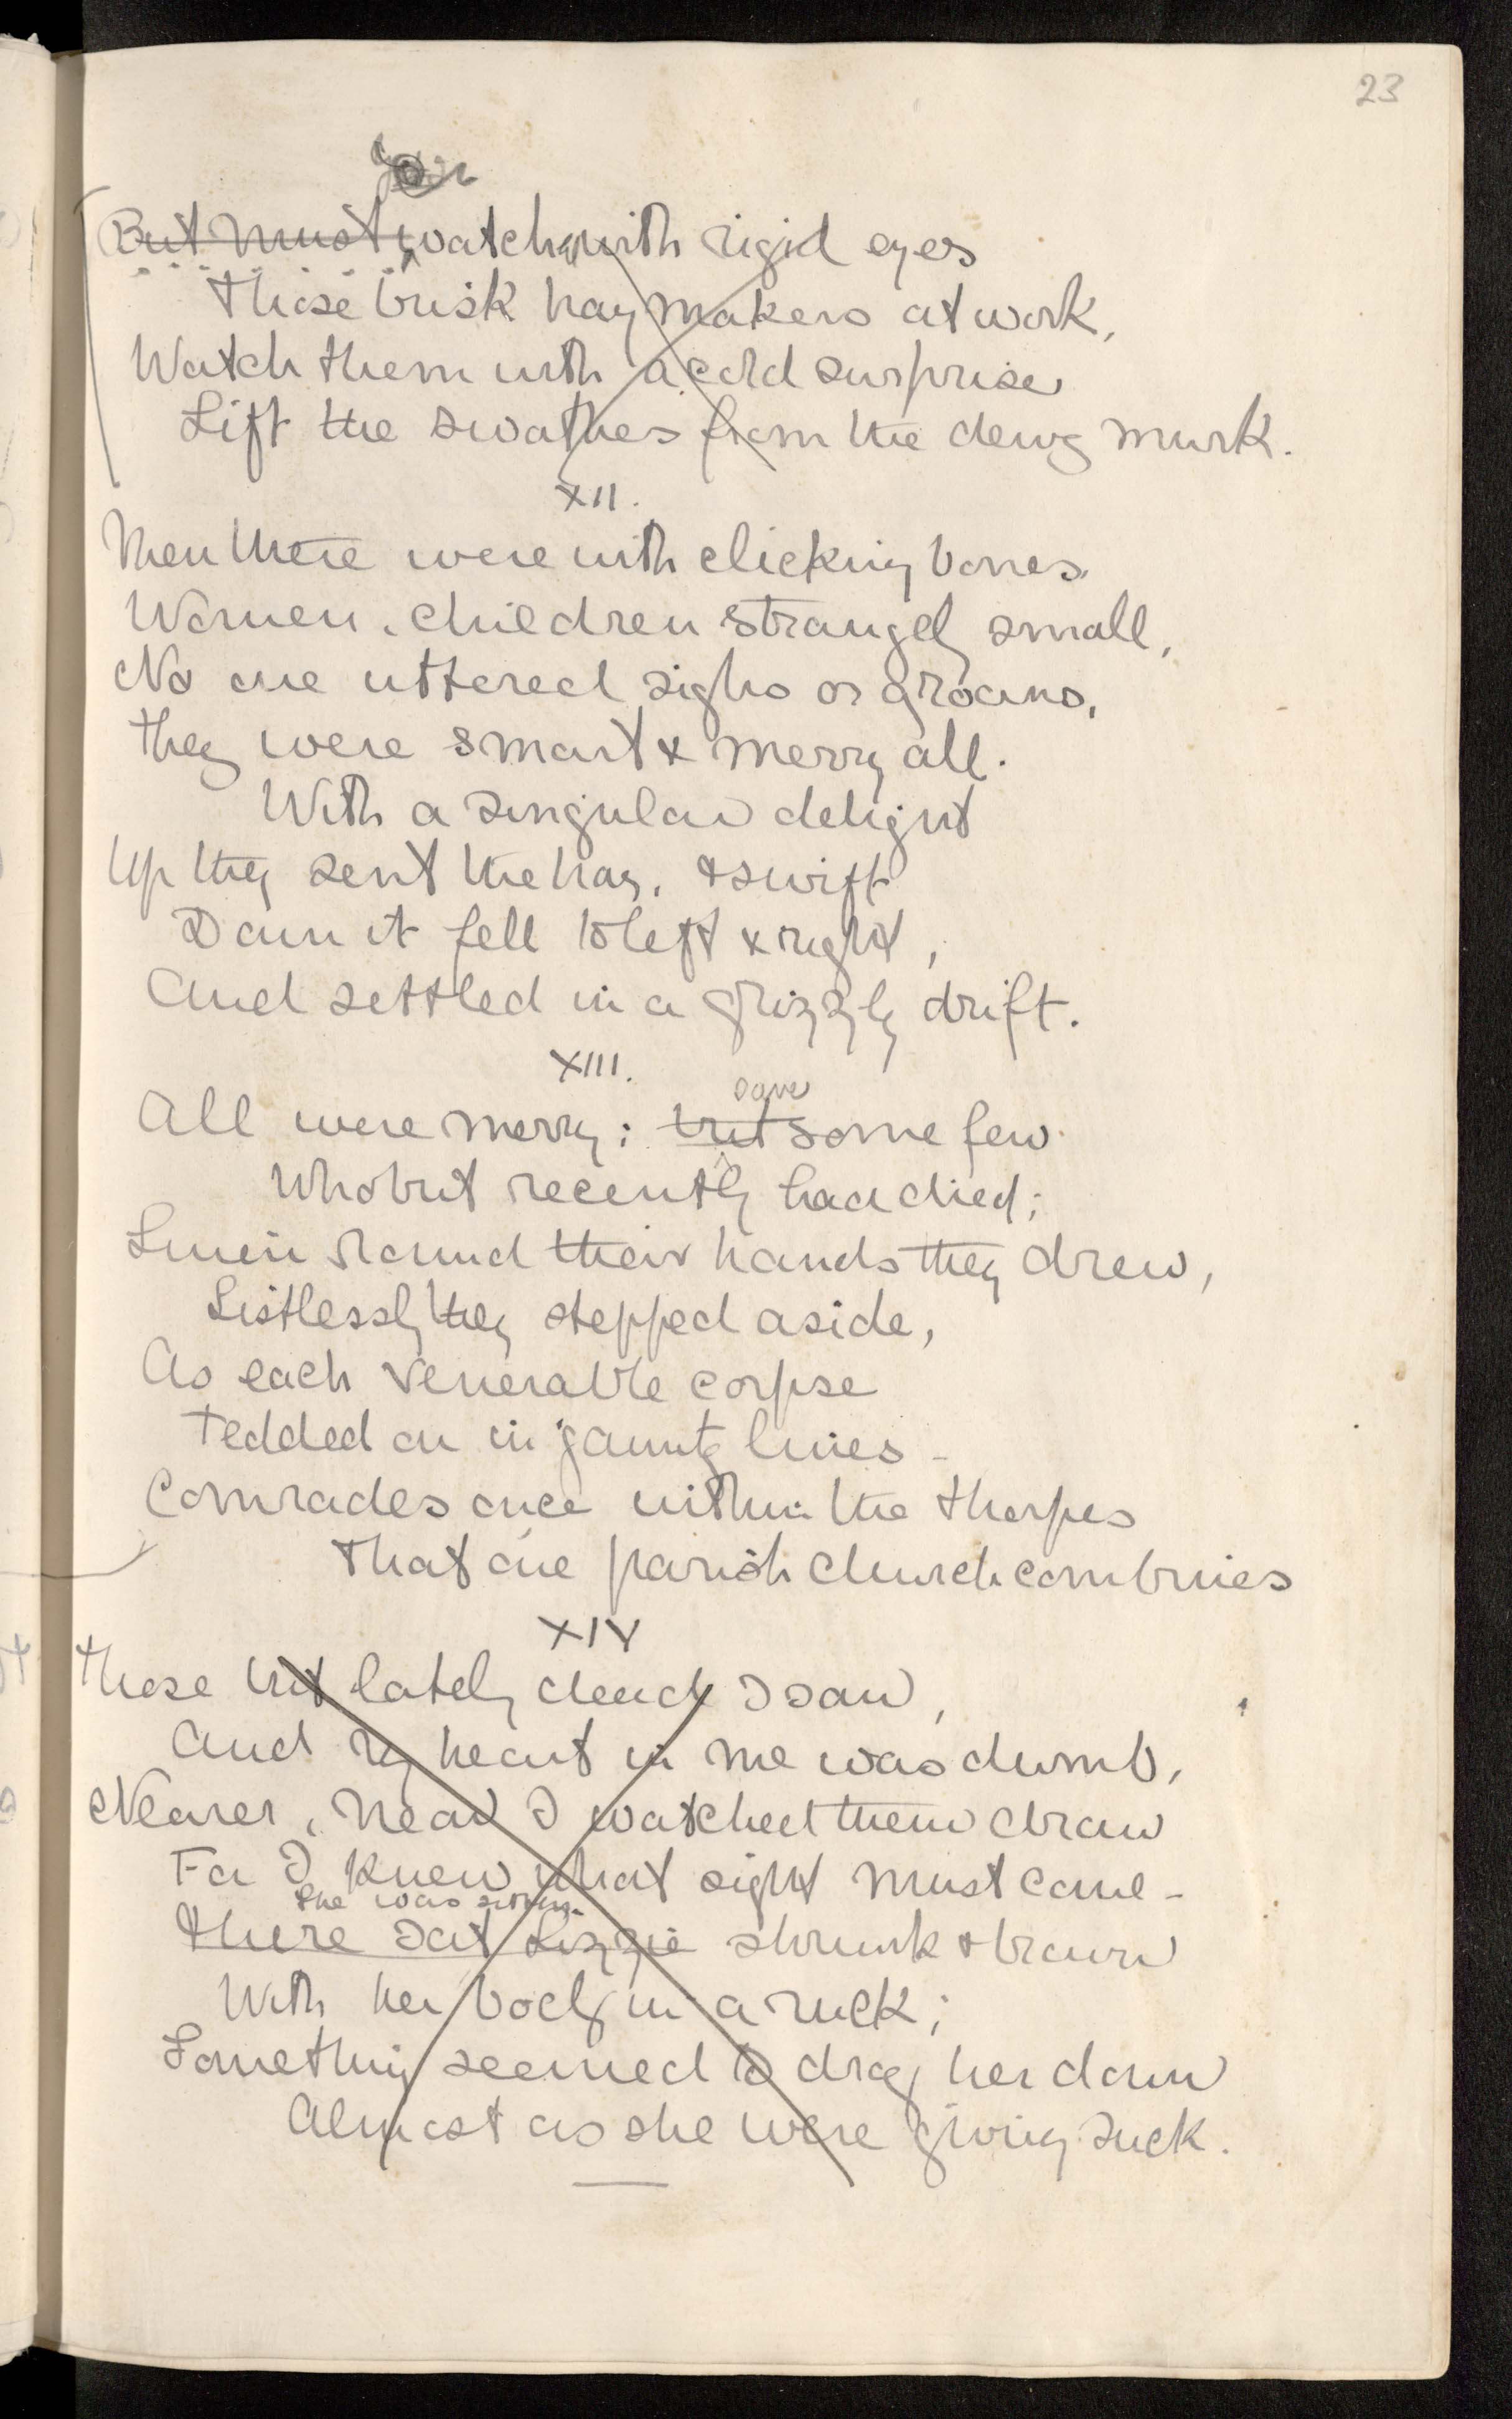 23
But must watch with rigid eyes
Those brisk haymakers at work,
Watch them with a cold surprise
Lift the swathes from the dewy murk.
XII.
Men there were with clicking bones.
Women, children strangely small,
No one uttered sighs or groans,
They were smart & merry all.
With a singular delight
Up they sent the hay, & swift
Down it fell to left & right,
And settled in a grizzly drift.
XIII.
save
All were merry; but some few
Who but recently had died;
Linen round their hands they drew,
Listlessly they stepped aside,
As each venerable corpse
Tedded on in jaunty lines -
Comrades once within the thorpes
That one parish church combines
XIV
These but lately dead I saw,
And my heart in me was dumb,
Nearer, near I watched them draw
For I knew what sight must come -
she was sitting
There sat Lizzie shrunk & brown
With her body in a ruck;
Something seemed to drag her down
Almost as she were giving suck.